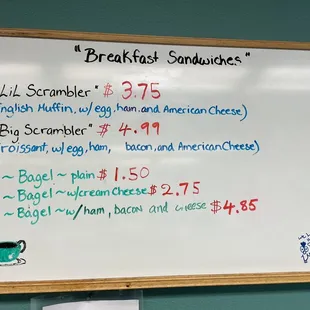 "Breakfast Sandwiches"
LiL Scrambler" $ 3.75
nglish Muffin, w/egg, ham, and American Cheese)
Big Scrambler" $ 4.99
roissant, w/egg, ham, bacon, and American Cheese)
~ Bagel ~ plain $ 1.50
~ Bagel ~ w/cream Cheese $ 2.75
~ Bagel ~ w/ham, bacon and cheese $ 4.85